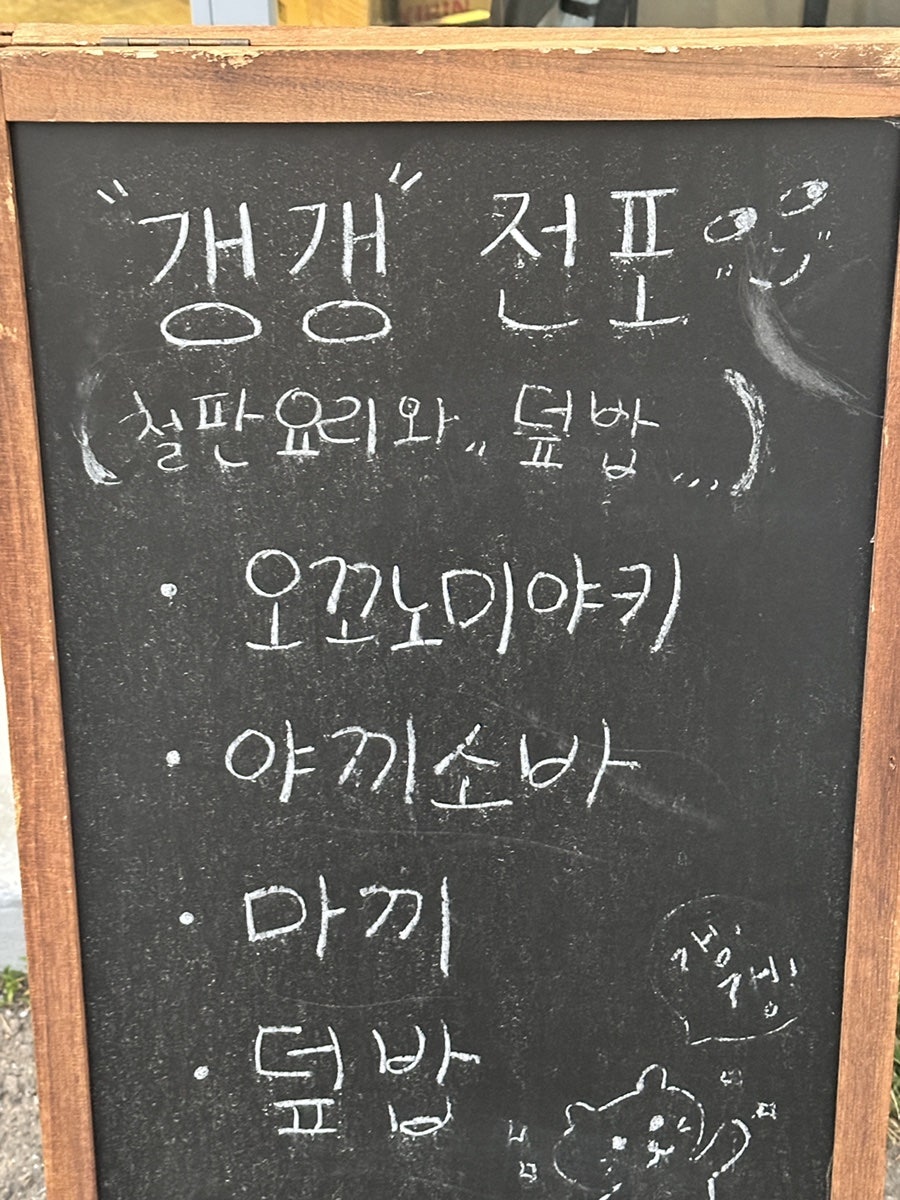 "갱갱" 전포
(철판요리와.. 덮밥...)
· 오꼬노미야키
· 야끼소바
· 마끼
· 덮밥
갱갱!